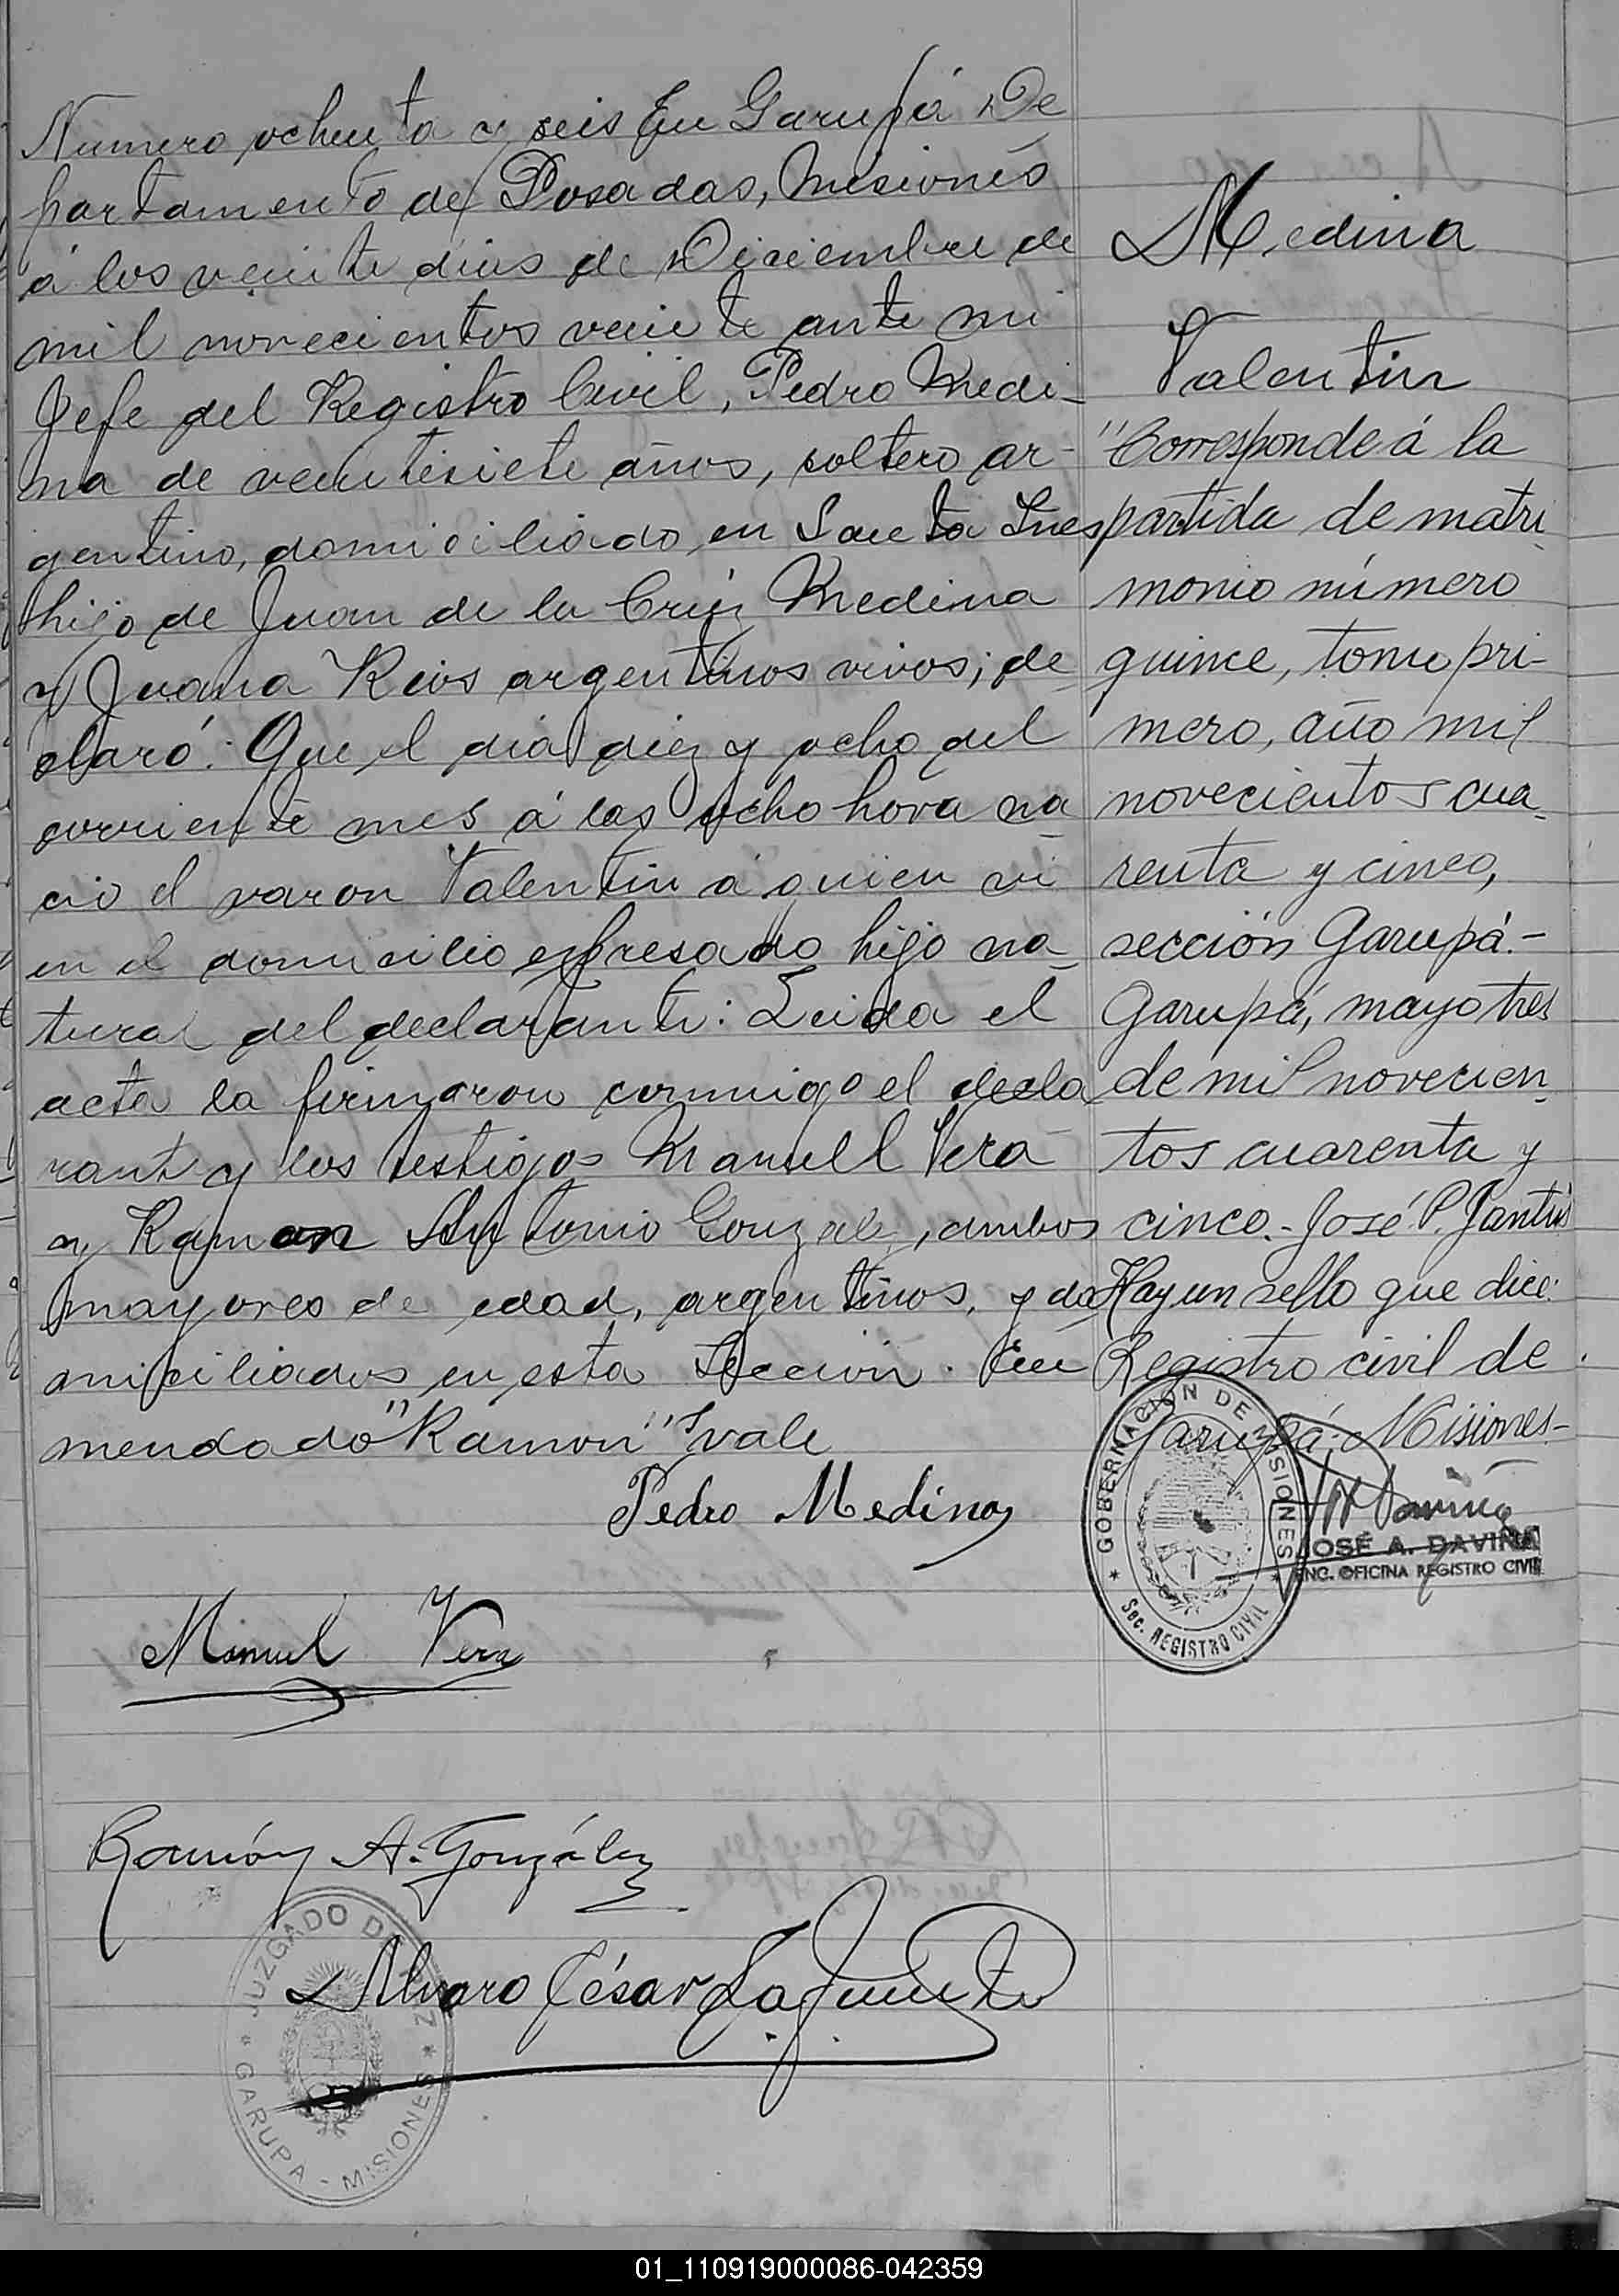 Numero ochenta y seis En Garupá De
partamento de Posadas, Misiones
á los veinte dias de Diciembre de
mil novecientos veinte ante mi
Jefe del Registro Civil, Pedro Medi-
na de veintisiete años, soltero ar-
gentino, domiciliado en Santa Ines
hijo de Juan de la Cruz Medina
y Juana Rios argentinos vivos; de
claró: Que el dia diez y ocho del
corriente mes á las ocho hora na
cio el varon Valentin á quien vi
en el domicilio espresado hijo na
tural del declarante: Leida el
acta la firmaron conmigo el decla
rante y los testigos Manuel Vera
y Ramon Antonio Gonzalez, ambos
mayores de edad, argentinos, y do
miciliados en esta Seccion. En
mendado "Ramon" vale
Pedro Medina
Manuel Vera
Ramón A. González
Alvaro César Lafuente
JUZGADO DE
GARUPA - MISIONES
Medina
Valentin
"Corresponde á la
partida de matri
monio número
quince, tomo pri-
mero, año mil
novecientos cua
renta y cinco,
sección Garupá.-
Garupá, mayo tres
de mil novecien
tos cuarenta y
cinco.- José P.
Hay un sello que dice:
Registro civil de
Garupá; Misiones-
GOBERNACION DE MISIONES
Sec. REGISTRO CIVIL
JOSÉ A. DAVIÑA
ENC. OFICINA REGISTRO CIVIL
01_110919000086-042359